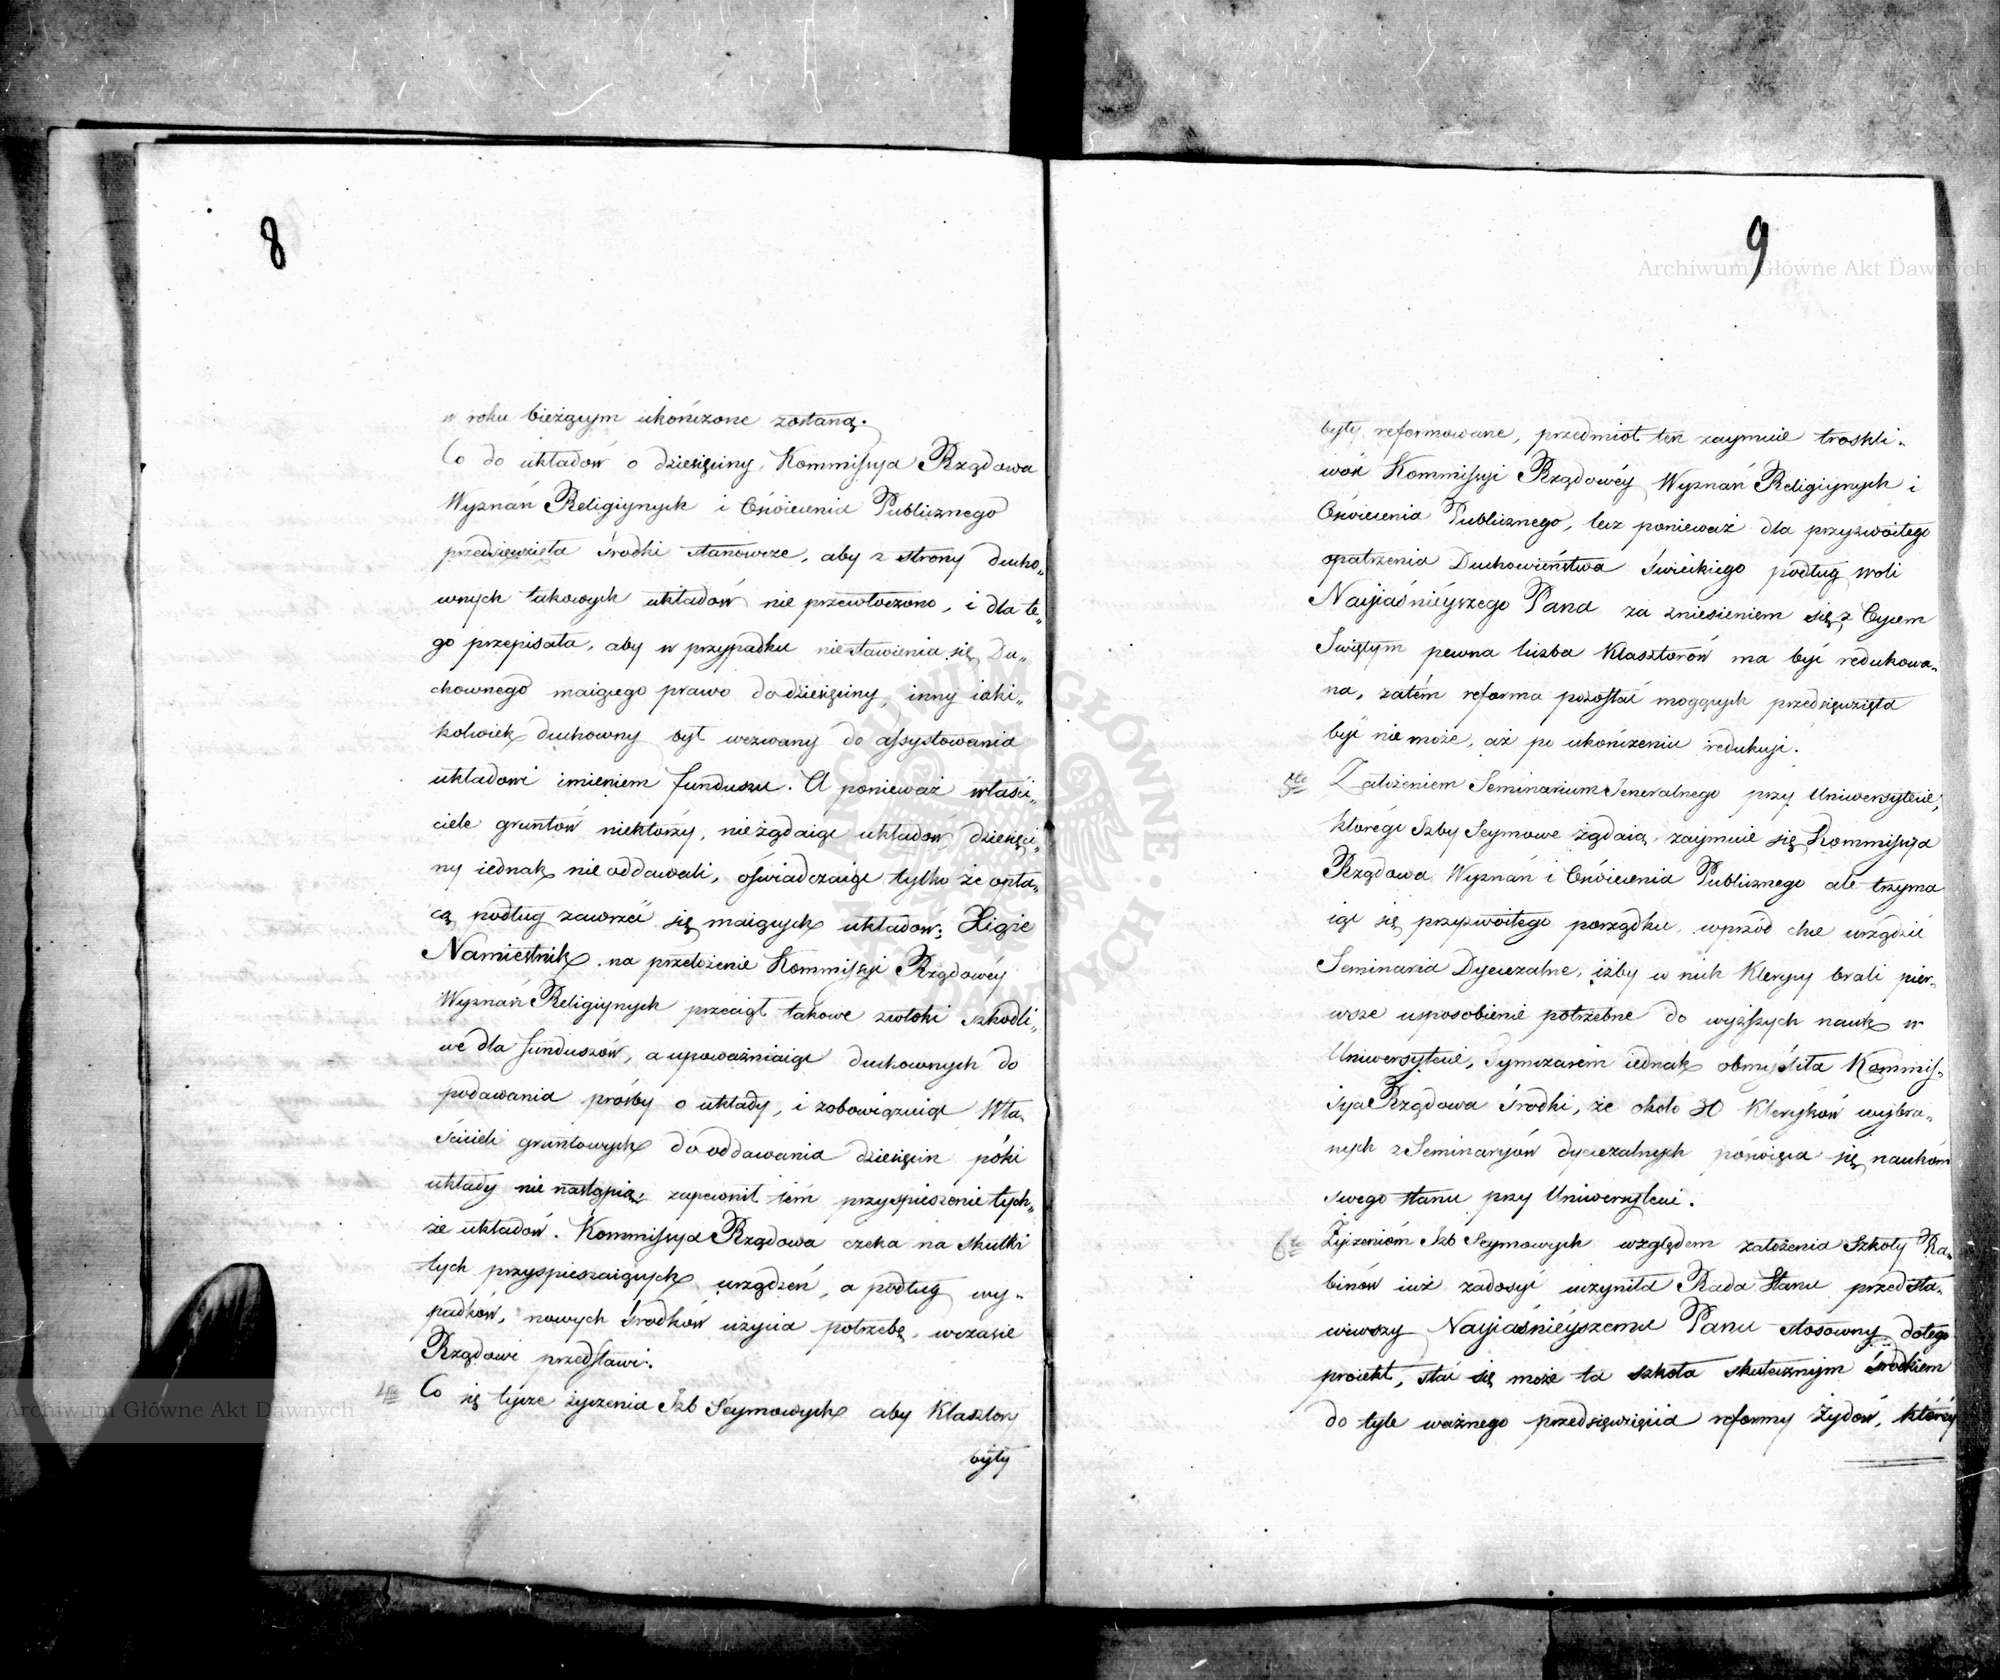 8
w roku bieżącym ukończone zostaną.
Co do układów o dziesięciny, Kommissya Rządowa
Wyznań Religiynych i Oświecenia Publicznego
przedsięwzięła środki stanowcze, aby z strony ducho„
wnych takowych układów nie przewłoczono, i dla te„
go przepisała, aby w przypadku niestawienia się Du„
chownego maiącego prawo do dziesięciny, inny iaki„
kolwiek duchowny był wezwany do assystowania
układowi imieniem funduszu. A ponieważ właści„
ciele gruntów niektórzy, nieżądaiąc układów, dziesięci„
ny iednak nie oddawali, oświadczaiąc tylko że opła„
cą podług zawrzeć się maiących układów; Xiąże
Namiestnik na przełożenie Kommissyi Rządowéy
Wyznań Religiynych przeciął takowe zwłoki szkodli„
we dla funduszów, a upoważniaiąc duchownych do
podawania prośby o układy, i zobowiązuiąc Wła„
ścicieli gruntowych do oddawania dziesięcin póki
układy nie nastąpią, zapewnił tém przyspieszenie tych„
że układów. Kommissya Rządowa czeka na skutki
tych przyspieszaiących urządzeń, a podług wy„
padków, nowych środków użycia potrzebę, wczasie
Rządowi przedstawi.
4te Co się tycze życzenia Izb Seymowych aby Klasztory
były
9
były reformowane, przedmiot ten zaymuie troskli„
wość Kommissyi Rządowéy Wyznań Religiynych i
Oświecenia Publicznego, lecz ponieważ dla przyzwoitego
opatrzenia Duchowieństwa Świeckiego podług woli
Nayiaśnieyszego Pana za zniesieniem się z Oycem
Świętym pewna liczba Klasztorów ma być redukowa„
na, zatém reforma pozostać mogących przedsięwzięta
być nie może, aż po ukończeniu redukcyi.
5te Założeniem Seminarium Generalnego przy Uniwersytecie,
którego Izby Seymowe żądaią, zaymuie się Kommissya
Rządowa Wyznań i Oświecenia Publicznego ale trzyma
iąc się przyzwoitego porządku wprzód chce urządzić
Seminaria Dyecezalne, iżby w nich Klerycy brali pier„
wsze usposobienie potrzebne do wyższych nauk w
Uniwersytecie, Tymczasem iednak obmyśliła Kommis„
sya Rządowa środki, że około 30 Kleryków wybra„
nych z Seminaryów dyecezalnych poświęca się naukom
swego stanu przy Uniwersytecie.
6te Życzeniom Izb Seymowych względem założenia Szkoły Ra„
binów iuż zadosyć uczyniła Rada Stanu przedsta„
wiwszy Nayiaśnieyszemu Panu stosowny dotego
proiekt, stać się może ta szkoła skutecznym środkiem
do tyle ważnego przedsięwzięcia reformy Żydów, którzy
Archiwum Główne Akt Dawnych
Archiwum Główne Akt Dawnych
ARCHIWUM GŁÓWNE AKT DAWNYCH